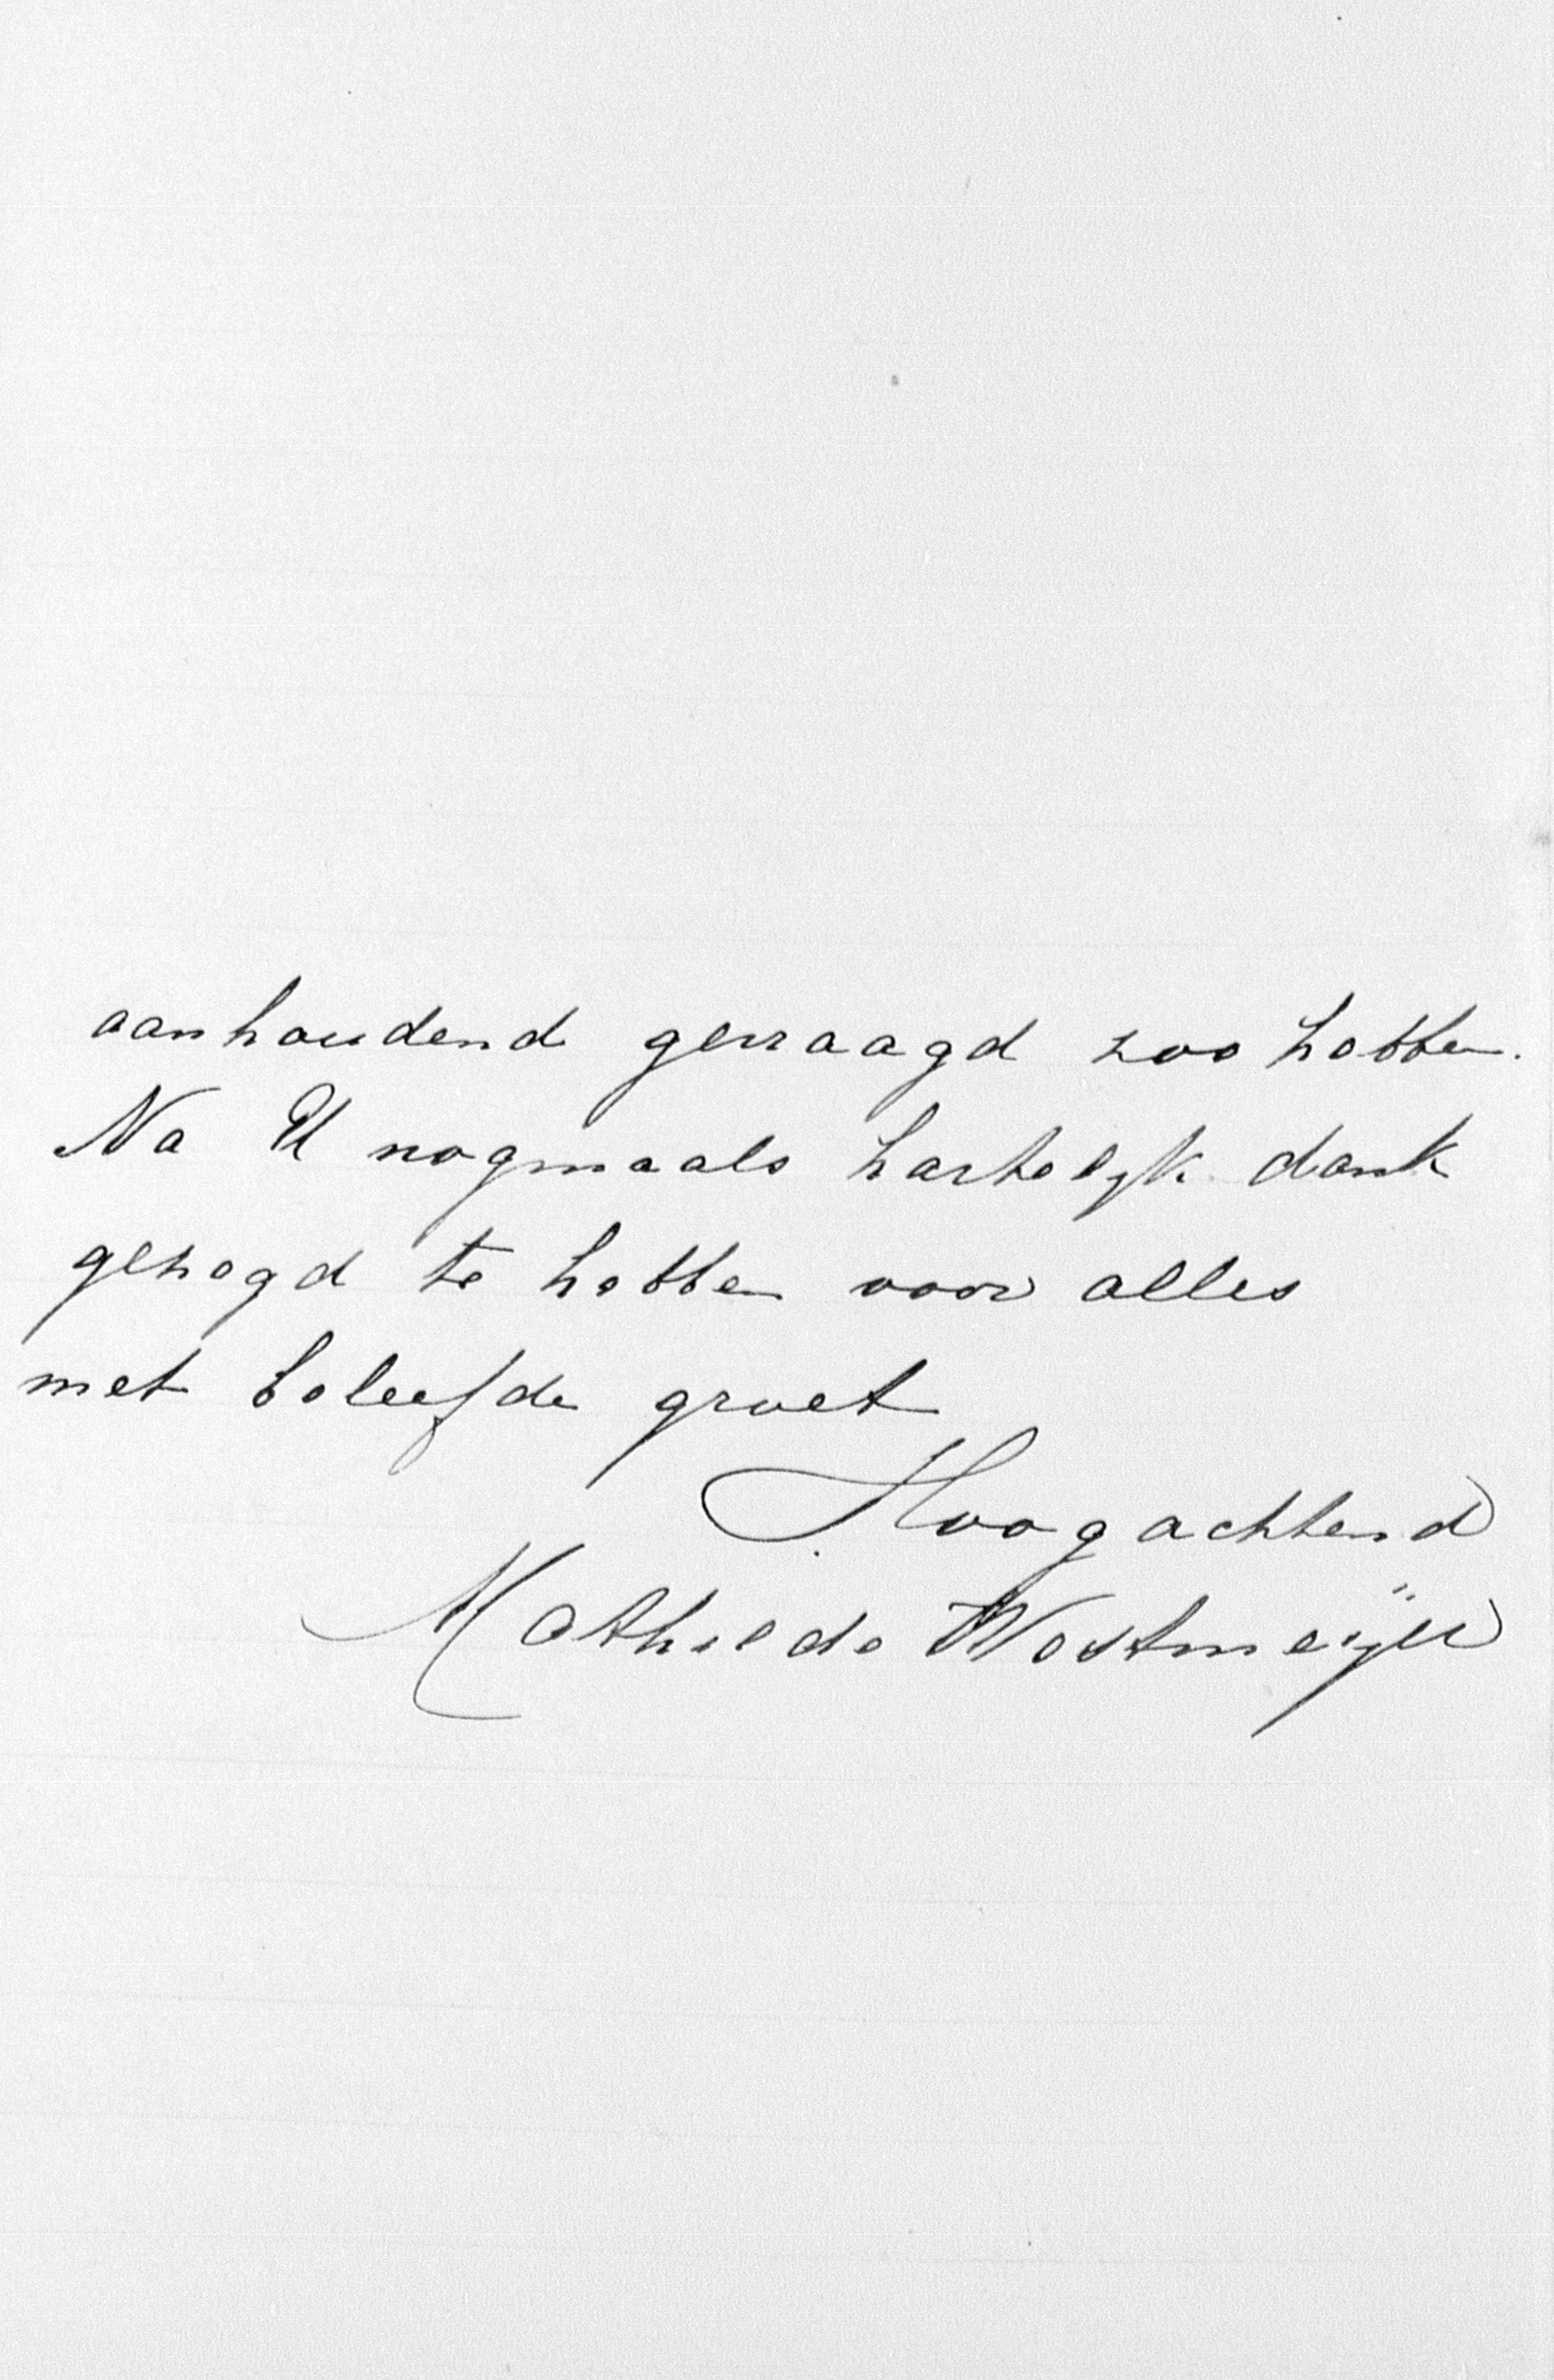 aanhoudend gevraagd zoo hebben.
Na U nogmaals hartelijk dank
gezegd te hebben voor alles
met beleefde groet
Hoogachtend
Mathilde Westmeijer